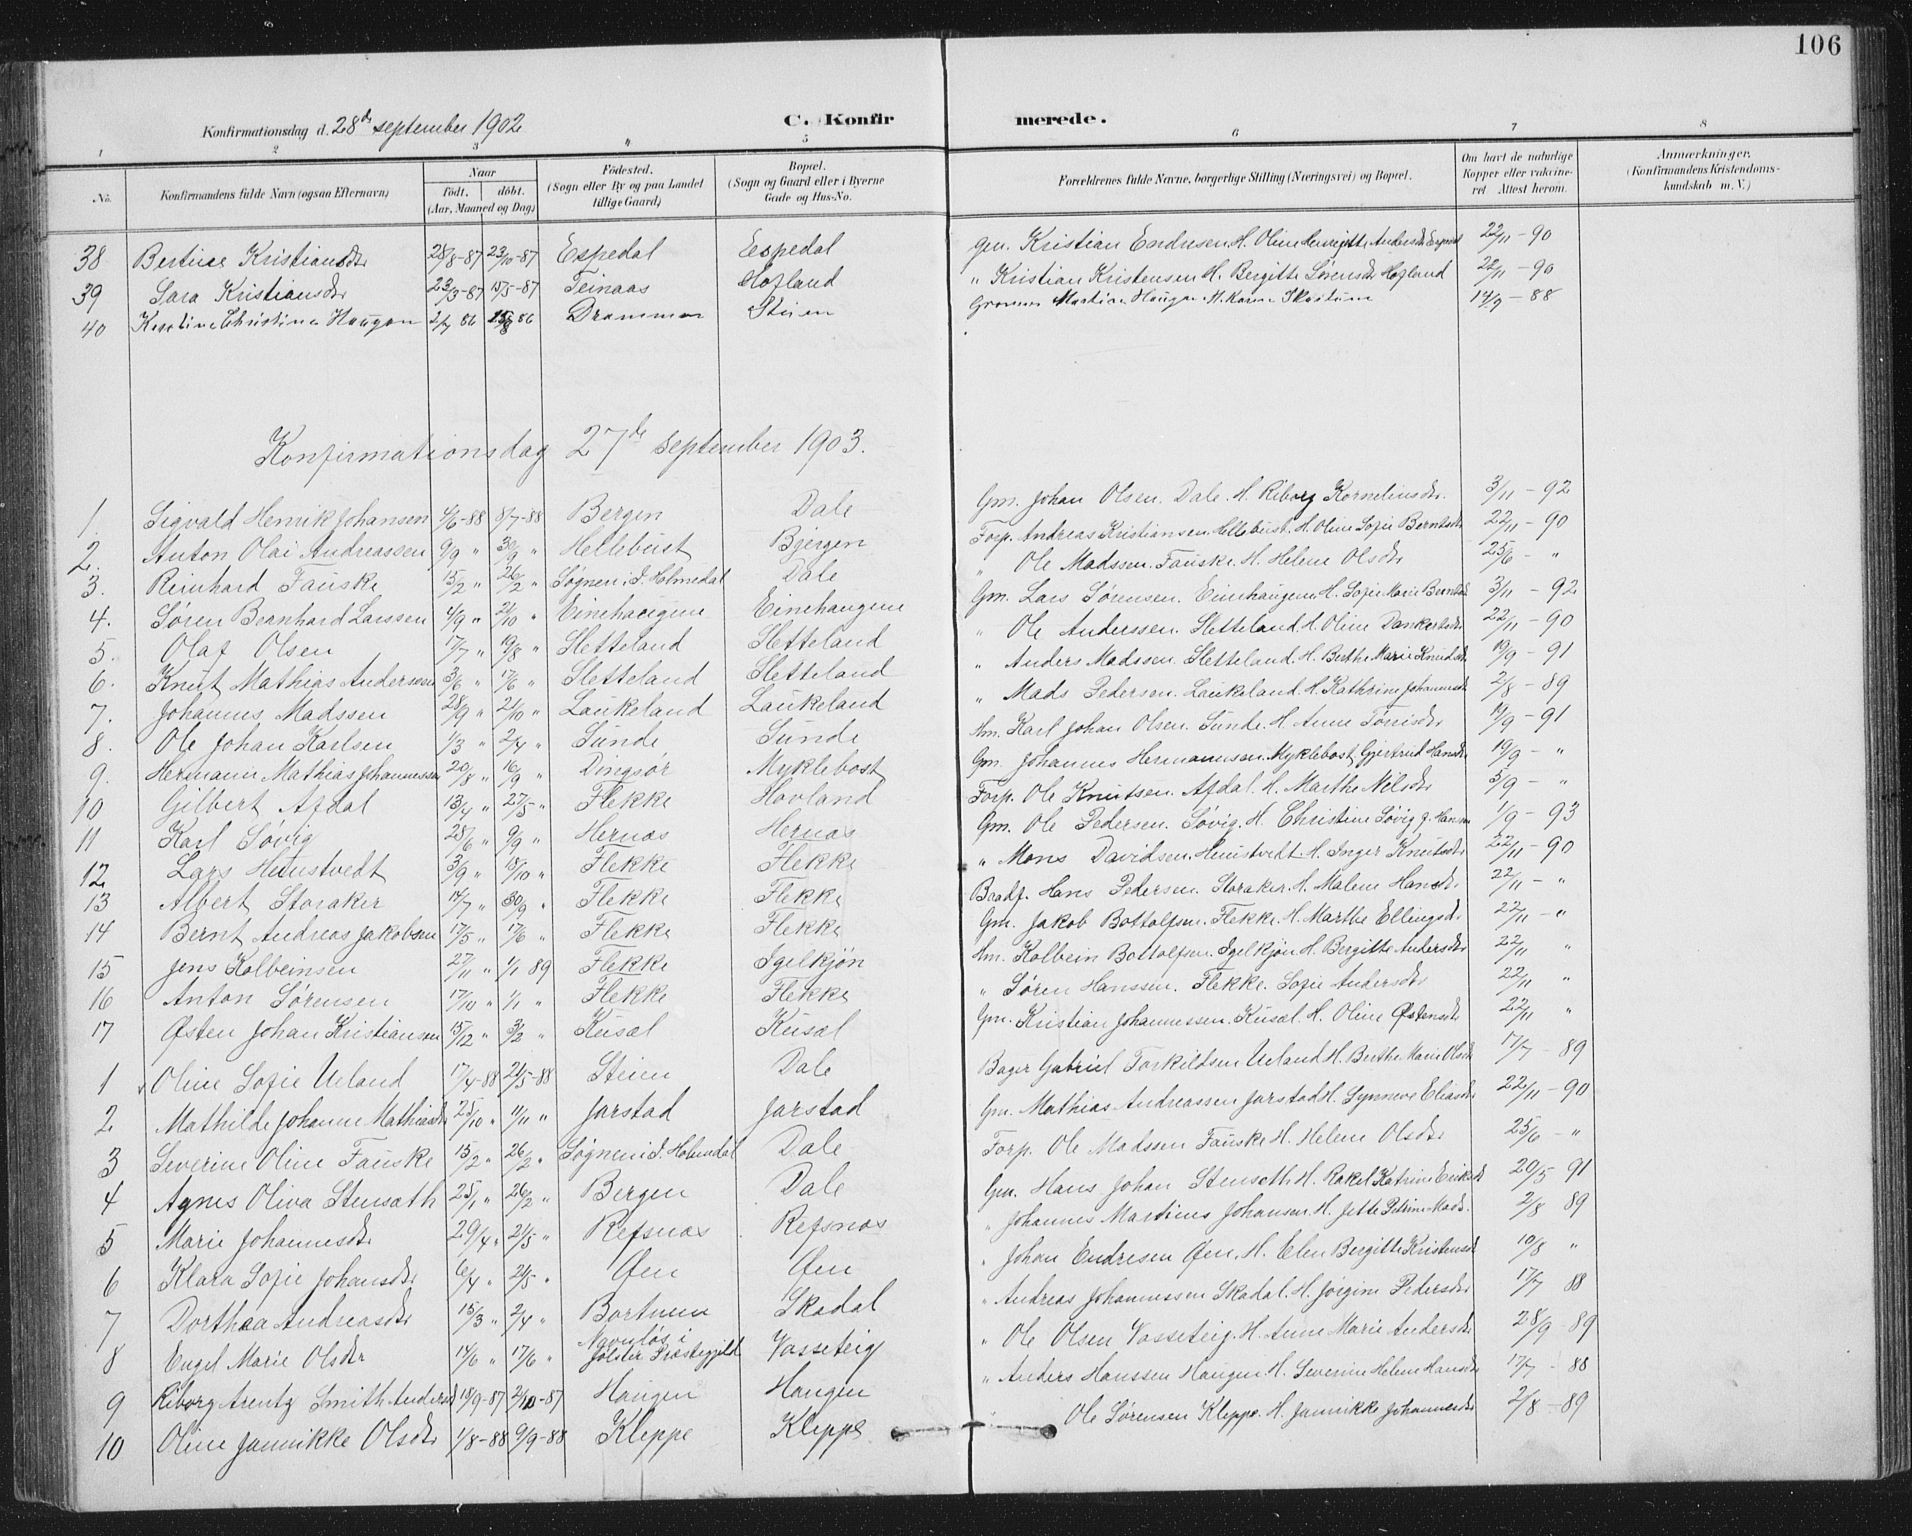 106
Konfirmationsdag d. 28de september 1902
C. Konfir merede.
1 2 3 4 5 6 7 8
No. Konfirmandens fulde Navn (ogsaa Efternavn) Naar født. døbt. (Aar, Maaned og Dag) Fødested. (Sogn eller By og paa Landet tillige Gaard) Bopæl. (Sogn og Gaard eller i Byerne Gade og Hus-No. Forældrenes fulde Navne, borgerlige Stilling (Næringsvei) og Bopæl. Om havt de naturlige Kopper eller vakcineret Attest herom. Anmærkninger. (Konfirmandens Kristendomskundskab m. V.)
38 Bertine Kristiansdr 28/8-87 23/10-87 Espedal Espedal Gm. Kristian Endresen H. Oline Henrigitte Andersdr 22/11-90
39 Sara Kristiansdr 23/3-87 15/5-87 Teinaas Hofland " Kristian Kristensen H. Bergitte Sørensdr Hofland 22/11-90
40 Christine Haugan 2/7 86 86 Drammen Steien Martin Haugan H. Karen Skastum 14/9-88
Konfirmationsdag 27de september 1903.
1. Sigvald Henrik Johansen 4/6-88 8/7-88 Bergen Dale Gm. Johan Olsen. Dale. H. Riborg Kornelinsdr. 3/11-92
2. Anton Olai Andreassen 9/9 " 30/9 " Hellebust Bjergen Forp. Andreas Kristiansen Hellebust. H. Oline Sofie Berntsdr 22/11-90
3. Reinhard Fauske 15/2 " 26/2 " Søgnen i I. Holmedal Dale " Ole Madssen. Fauske. H. Helene Olsdr 25/6-"
4. Søren Bernhard Larssen 4/9 " 21/10 " Einehaugene Einehaugene Gm. Lars Sørensen. Einehaugene H. Sofie Marie Berntsdr 3/11-92
5. Olaf Olsen 17/7 " 19/8 " Sletteland Sletteland " Ole Anderssen. Sletteland. H. Oline Dankertsdr 22/11-90
6. Knut Mathias Anderssen 3/6 " 17/6 " Sletteland Sletteland " Anders Madssen. Sletteland. H. Berthe Marie Knudsdr 19/9-91
7. Johannes Madssen 28/9 " 21/10 " Laukeland Laukeland " Mads Pedersen. Laukeland H. Kathrine Johannesdr 2/8-89
8. Ole Johan Karlsen 1/3 " 2/4 " Sunde Sunde Hm. Karl Johan Olsen. Sunde. H. Anne Tørrisdr 19/9-91
9. Hermann Mathias Johannessen 20/8 " 16/9 " Dingsør Myklebost Gm. Johannes Hermannsen Myklebost Gjertrud Hansdr 19/9-"
10 Gilbert Afdal 13/4 " 27/5 " Flekke Hovland Forp. Ole Knutsen. Afdal. H. Marthe Nilsdr 5/9-"
11 Karl Søvig 28/6 " 9/9 " Hernæs Hernæs Gm. Ole Pedersen. Søvig. H. Christine Søvig f. Hansen 1/9-93
12 Lars Heustvedt 3/9 " 15/10 " Flekke Flekke " Mons Davidsen. Heustvedt. H. Inger Knutsdr 22/11-90
13 Albert Storaker 14/7 " 30/9 " Flekke Flekke Baadf. Hans Pedersen. Storaker. H. Malene Hansdr. 22/11-"
14 Bernt Andreas Jakobsen 17/5 " 17/6 " Flekke Flekke Gm. Jakob Bottolfsen. Flekke. H. Marthe Ellingsdr 22/11-"
15 Jens Kolbeinsen 27/11 " 1/1 89 Flekke Igelkjøn Hm. Kolbein Bottolfsen. Igelkjøn H. Bergitte Andersdr 22/11 "
16 Anton Sørensen 17/10 " 1/1 " Flekke Flekke " Søren Hanssen. Flekke. Sofie Andersdr 22/11 "
17 Østen Johan Kristiansen 15/12 " 3/2 " Kusæl Kusæl Gm. Kristian Johannessen. Kusæl. H. Oline Østensdr 22/11 "
1 Oline Sofie Urland 17/4-88 21/5-88 Steien Dale Bager Gabriel Torkildsen Urland H. Berthe Marie Olsdr 17/7-89
2 Mathilde Johanne Mathiasdr 25/10 " 11/11 " Jarstad Jarstad Gm. Mathias Andreassen Jarstad H. Synneve Eliasdr 22/11-90
3 Severine Oline Fauske 15/2 " 26/2 " Søgnen i I. Holmedal Dale Forp. Ole Madssen Fauske H. Helene Olsdr 25/6-"
4 Agnes Oliva Stensæth 25/1 " 26/2 " Bergen Dale Gm. Hans Johan Stenseth H. Rakel Katrine Eriksdr 20/5 91
5 Marie Johannesdr 29/4 " 21/5 " Refsnæs Refsnæs " Johannes Martinus Johansen H. Jette Petrine Mads. 2/8 89
6 Klara Sofie Johansdr 6/4 " 21/5 " Øen Øen " Johan Endresen Øen. H. Elen Bergitte Kristensdr 10/8 "
7 Dorthea Andreasdr 15/3 " 2/4 " Bortnen Skadal " Andreas Johannessen Skadal. H. Jørgine Pedersdr 17/7 88
8 Engel Marie Olsdr 14/6 " 17/6 " Navnløs i Jølster Præstegjeld Vasseteig " Ole Olsen Vasseteig. H. Anne Marie Andersdr 28/9-89
9 Riborg Arentz Smith Andersdr 18/9-87 2/10-87 Haugen Haugen " Anders Hanssen Haugen. H. Severine Helene Hansdr 17/7-88
10 Oline Jannikke Olsdr 1/8-88 9/9-88 Kleppe Kleppe Ole Sørensen Kleppe. H. Jannikke Johannesdr 2/8-89